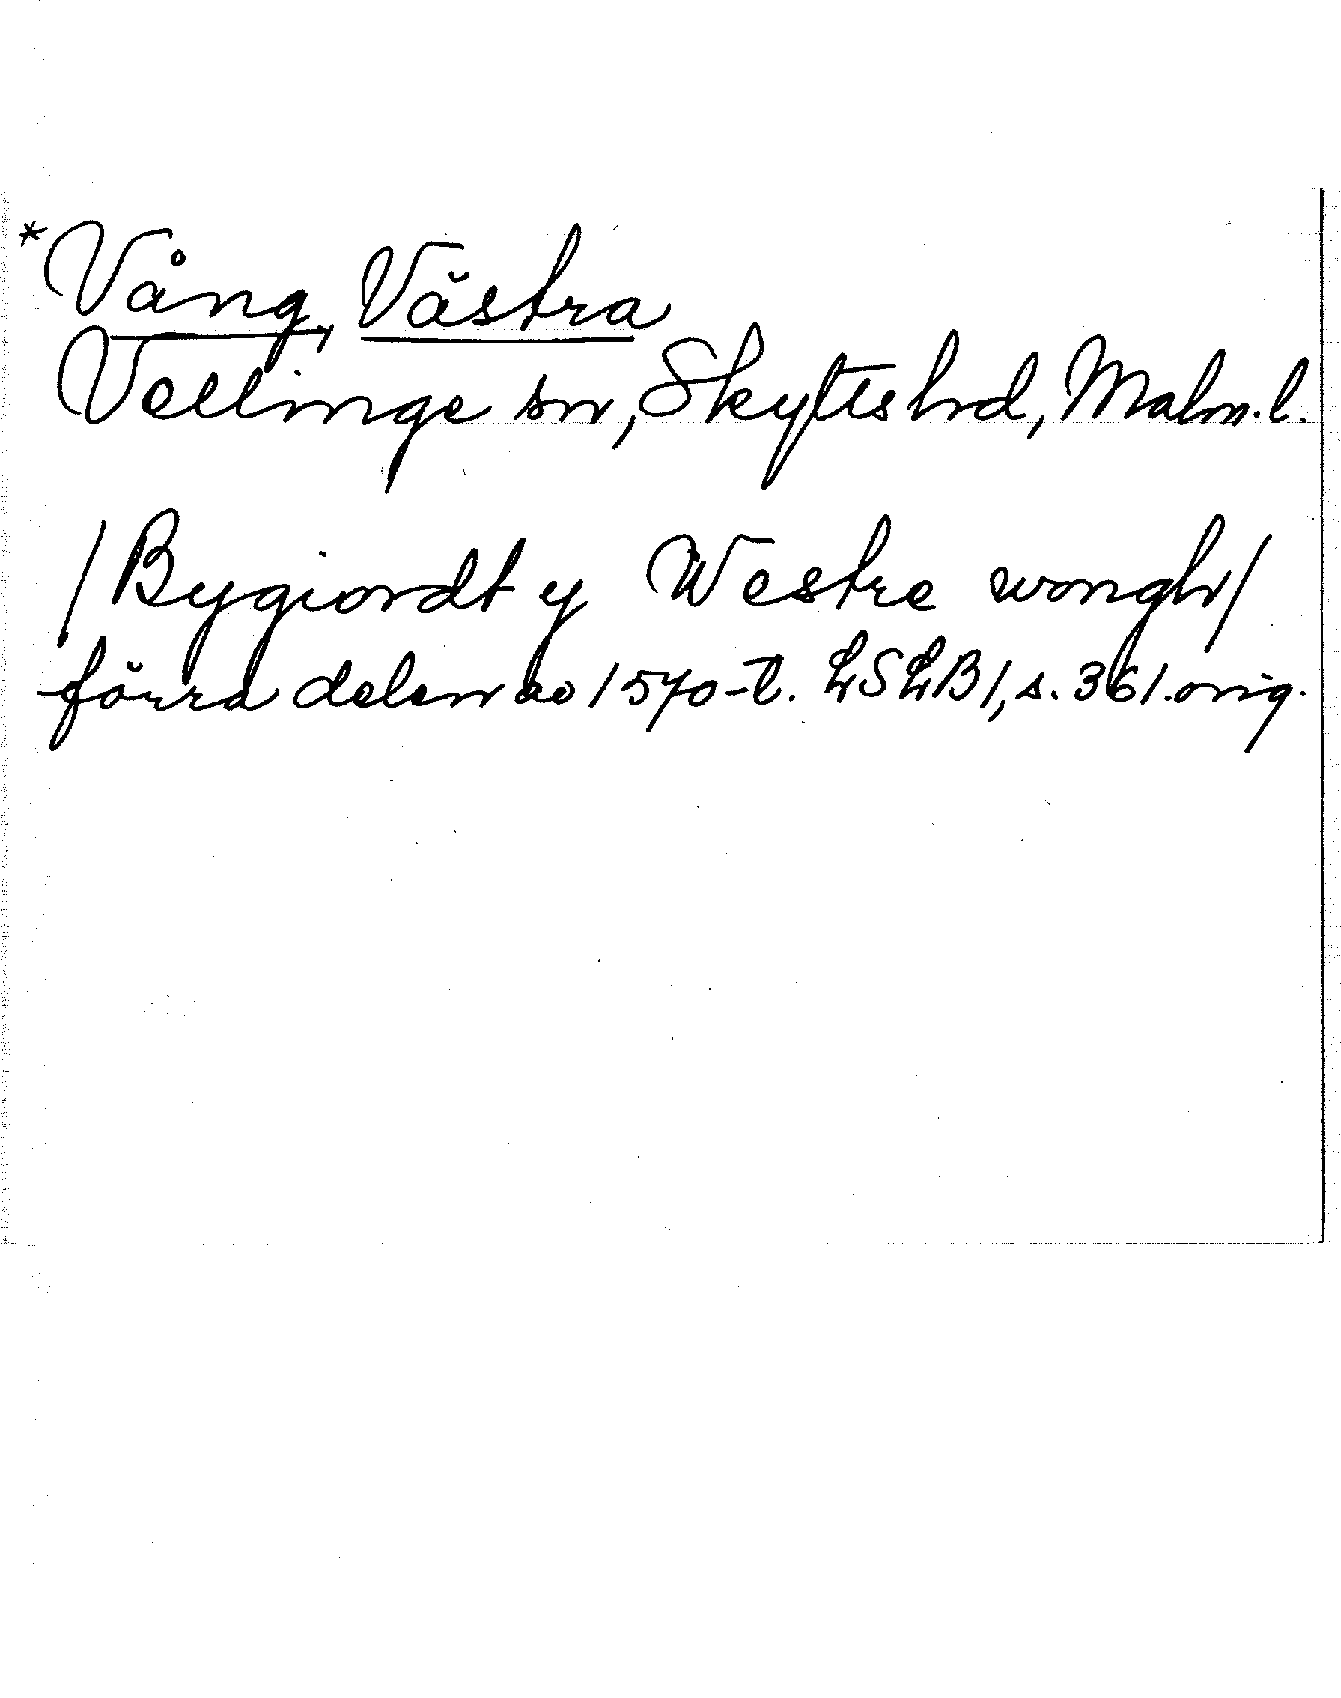 *Vång, Västra
Vellinge sn, Skytts hrd, Malm. l.
/Bygiordt y Westre wongh/
förra delen av 1570-t. LSLB 1, s. 361. orig.